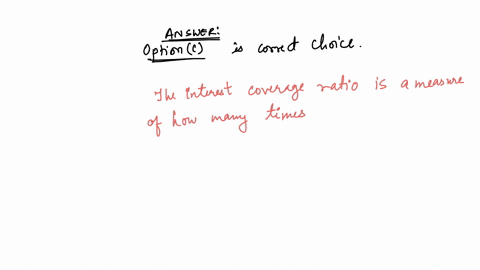 ANSWER:
Option(C) is correct choice.
The interest coverage ratio is a measure
of how many times